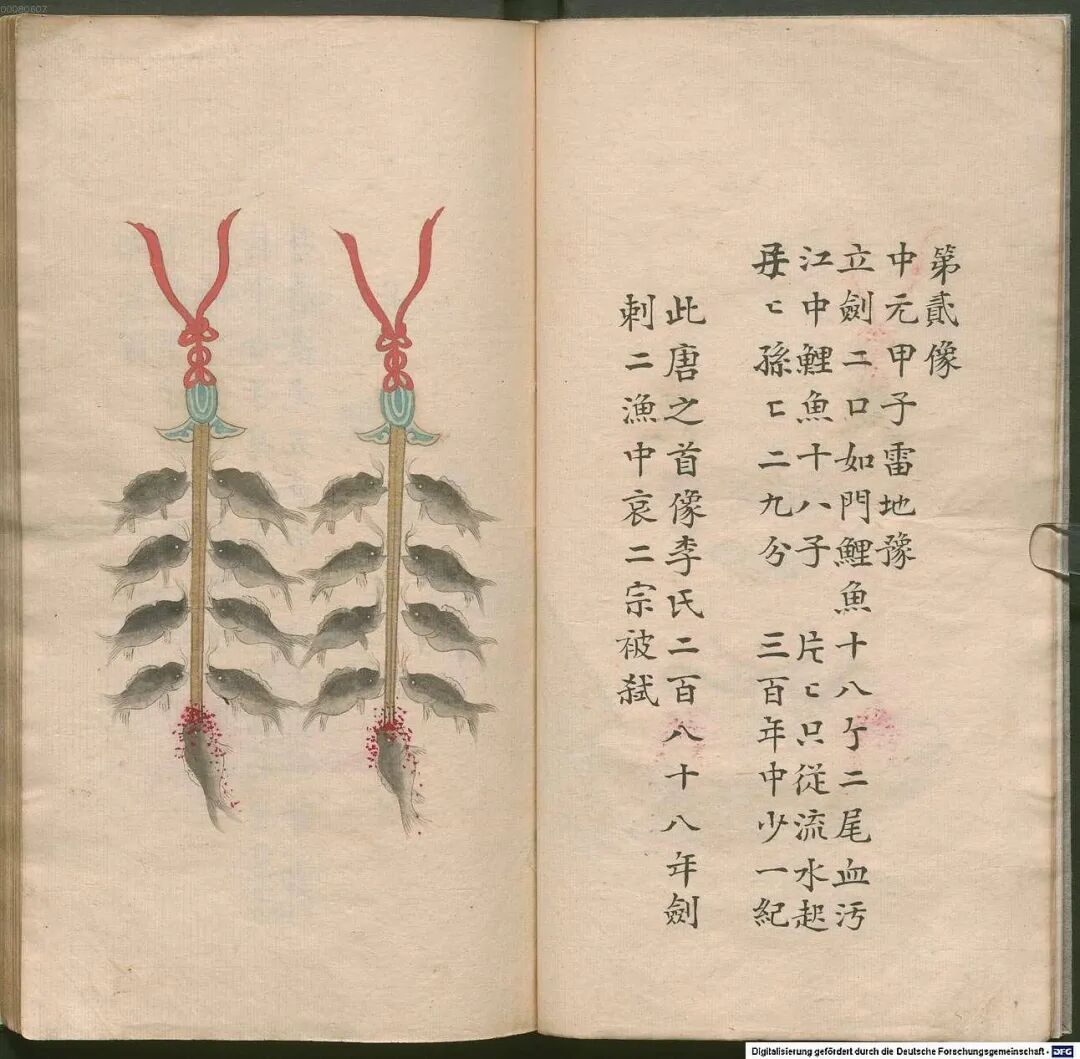 00080602
第貳像
中元甲子雷地豫
立劍二口如門鯉魚十八亇二尾血污
江中鯉魚十八子 片〻只從流水起
〻孫〻二九分 三百年中少一紀
此唐之首像李氏二百八十八年劍
刺二漁中哀二宗被弑
Digitalisierung gefördert durch die Deutsche Forschungsgemeinschaft - DFG